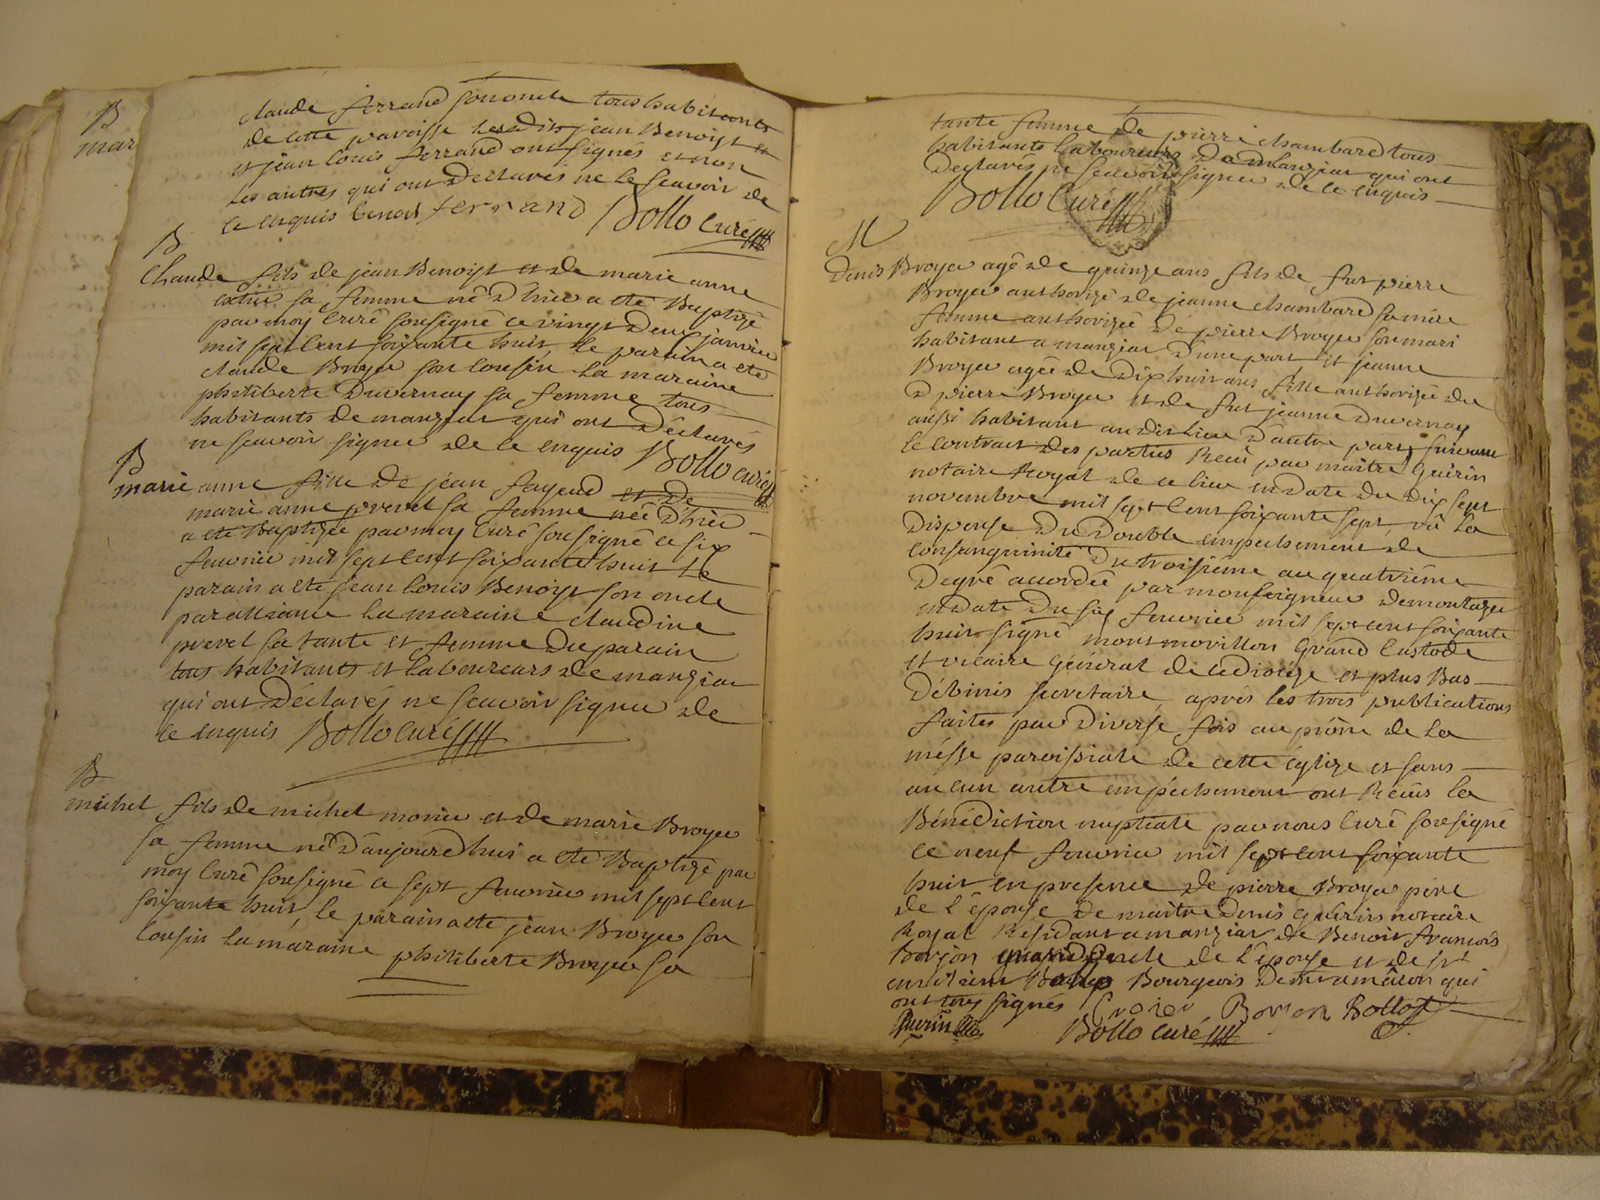 B
mar
claude ferrand son oncle tous habitants
de cette paroisse lesdits jean Benoist et
et jean louis ferrand ont signés et non
les autres qui ont declarés ne le scavoir de
ce enquis benoit ferrand Bollo Curé
B
Claude fils de jean Benoist et de marie anne
sa femme né d'hier a eté Baptizé
par moy Curé sousigné ce vingt deux janvier
mil sept cent soixante huit le parain a eté
claude Broyer son cousin la maraine
philiberte Duvernay sa femme tous
habitants de manziat qui ont déclarés
ne scavoir signer de ce enquis Bollo curé
B
marie anne fille de jean fayend et de
marie anne prevel sa femme née d'hier
a eté Baptizée par moy Curé sousigné ce six
fevrier mil sept cent soixante huit le
parain a eté jean louis Benoist son oncle
par alliance la maraine claudine
prevel sa tante et femme du parain
tous habitants et laboureurs de manziat
qui ont déclarés ne scavoir signer de
ce enquis Bollo Curé
B
michel fils de michel morier et de marie Broyer
sa femme né d'aujourdhui a eté Baptizé par
moy Curé sousigné ce sept fevrier mil sept cent
soixante huit, le parain a eté jean Broyer son
cousin la maraine philiberte Broyer sa
tante femme de pierre chambard tous
habitants laboureurs de manziat qui ont
declarés ne scavoir signer de ce enquis
Bollo Curé
M
Denis Broyer agé de quinze ans fils de fut pierre
Broyer authorizé de jeanne chambard sa mére
femme authorizée de pierre Broyer son mari
habitant a manziat d'une part et jeanne
Broyer agée de dix huit ans fille authorizée du
d pierre Broyer et de fut jeanne Duvernay
aussi habitant audit lieu d'autre part suivant
le contract des parties Recu par maitre guérin
notaire Royal de ce lieu en date du dix sept
novembre mil sept cent soixante sept, vû la
dispense du double empechement de
consanguinité du troisiéme au quatriéme
degré accordée par monseigneur demontazet
en date du six fevrier mil sept cent soixante
huit signé montmorillon Grand Custode
et vicaire général de ce diocéze et plus bas
Débinis secretaire, aprés les trois publications
faites par diverse fois au prône de la
mésse paroissiale de cette églize et sans
aucun autre empéchement ont Récus la
Bénédiction nuptiale par nous Curé sousigné
ce neuf fevrier mil sept cent soixante
huit En presence de pierre Broyer pére
de l'épouse de maitre Denis guérin notaire
Royal Residant a manziat de Benoit francois
Borjon de l'épouse et de sr
Bollo Bourgeois demt a mâcon qui
ont tous signés Broier Borjon Bollot
Guérin Bollo curé